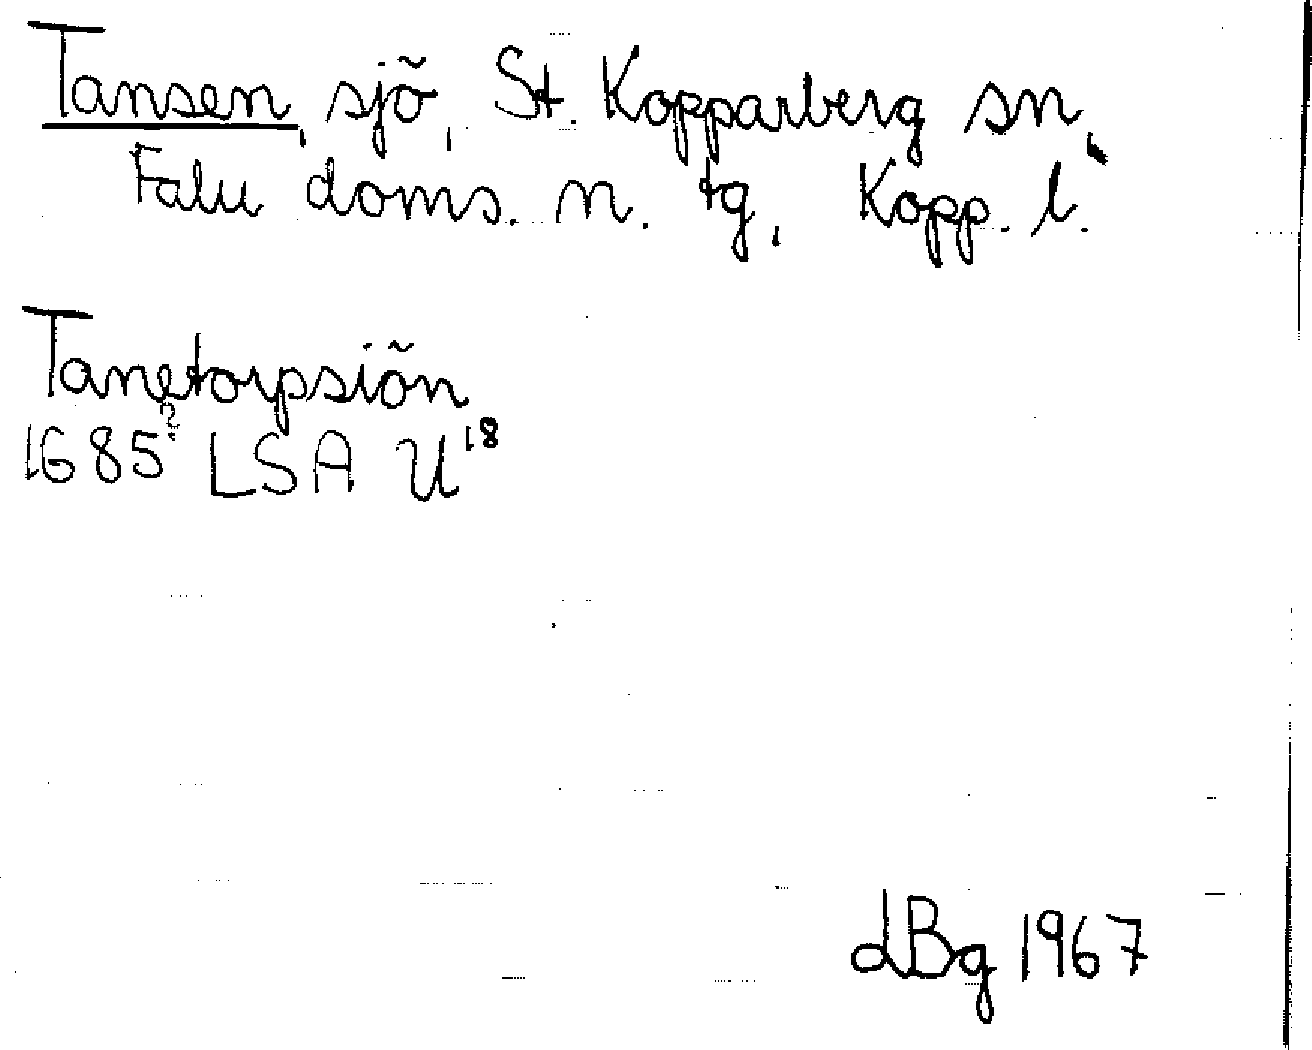 Tansen, sjö, St. Kopparberg sn,
Falu doms. n. tg, Kopp. l.
Tanetorpsiön
1685? LSA U18
dBg 1967